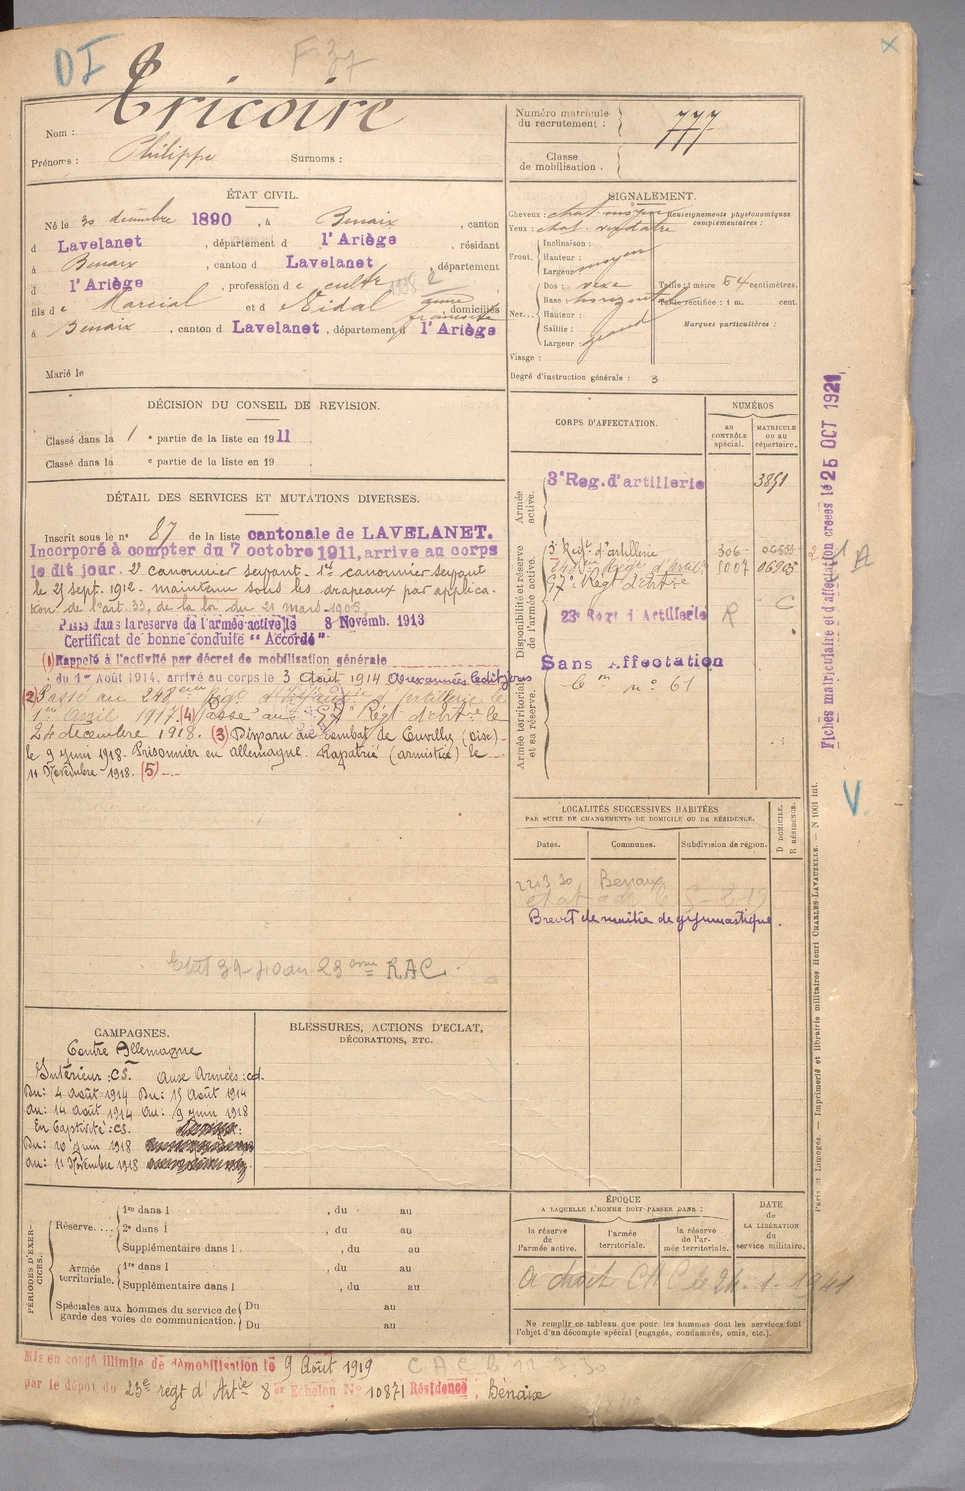 DI
F. 37
Nom : Tricoire
Prénoms : Philippe Surnoms :
Numéro matricule du recrutement : 777
Classe de mobilisation .
ÉTAT CIVIL.
Né le 30 décembre 1890 , à Benaix , canton
d Lavelanet , département d l'Ariège , résidant
à Benaix , canton d Lavelanet , département
d l'Ariège , profession d e cultr
fils d e Marcial et d Vidal domiciliés
à Benaix , canton d Lavelanet , département d l'Ariège
Marié le
SIGNALEMENT.
Cheveux : chat. moyen Renseignements physionomiques complémentaires :
Yeux : chat. verdâtre
Front. Inclinaison :
Hauteur :
Largeur moyen
Nez... Dos : vexe Taille : 1 mètre 64 centimètres.
Base : horizontal Taille rectifiée : 1 m. cent.
Hauteur :
Saillie : Marques particulières :
Largeur : grand
Visage :
Degré d'instruction générale : 3
DÉCISION DU CONSEIL DE REVISION.
Classé dans la 1 e partie de la liste en 1911 .
Classé dans la e partie de la liste en 19 .
DÉTAIL DES SERVICES ET MUTATIONS DIVERSES.
Inscrit sous le n° 87 de la liste cantonale de LAVELANET.
Incorporé à compter du 7 octobre 1911, arrive au corps
le dit jour. 2e canonnier servant. 1er canonnier servant
le 25 sept. 1912. maintenu sous les drapeaux par applica-
tion de l'art. 33, de la loi du 21 mars 1905,
Passé dans la reserve de l'armée active le 8 Novemb. 1913
Certificat de bonne conduite "Accordé"
(1) Rappelé à l'activité par décret de mobilisation générale
du 1er Août 1914, arrivé au corps le 3 Août 1914 Aux armées le dit jour
(2) Passé au 248eme Régt d'Artillerie le
1er Avril 1917. (4) Passé au 57e Régt d'Artie le
24 décembre 1918. (3) Disparu au combat de Cuvilly (Oise)
le 9 juin 1918. Prisonnier en Allemagne. Rapatrié (armistice) le
11 Novembre 1918. (5)
Etat 39-40 au 23eme RAC.
CORPS D'AFFECTATION.
NUMÉROS
AU CONTRÔLE spécial.
MATRICULE OU AU RÉPERTOIRE.
Armée active.
3e Reg. d'artillerie 3851
Disponibilité et réserve de l'armée active.
3e Regt d'artillerie 306
248eme Régt d'artie 1007
57e Régt d'Artie
23e Regt d'Artillerie R C
Armée territoriale et sa réserve.
Sans Affectation
n° 61
Fiches matriculaire et d'affectation créées le 25 OCT 1921
A
V.
LOCALITÉS SUCCESSIVES HABITÉES
PAR SUITE DE CHANGEMENTS DE DOMICILE OU DE RÉSIDENCE.
Dates. Communes. Subdivision de région.
D DOMICILE.
R RÉSIDENCE.
22.3.30 Benaix
Brevet de maître de gymnastique.
CAMPAGNES.
Contre Allemagne
Intérieur : CS. Aux Armées : cd.
Du : 4 Août 1914 Du : 15 Août 1914
Au : 14 Août 1914 Au : 9 juin 1918
En Captivité : CS.
Du : 10 juin 1918
Au : 11 Novembre 1918
BLESSURES, ACTIONS D'ECLAT,
DÉCORATIONS, ETC.
PÉRIODES D'EXERCICES.
Réserve.... 1re dans l , du au
2e dans l , du au
Supplémentaire dans l . , du au
Armée territoriale. 1re dans l , du au
Supplémentaire dans l , du au
Spéciales aux hommes du service de garde des voies de communication. Du au
Du au
ÉPOQUE
A LAQUELLE L'HOMME DOIT PASSER DANS :
la réserve de l'armée active.
l'armée territoriale.
la réserve de l'armée territoriale.
DATE de LA LIBÉRATION du service militaire.
à droit CHC le 24-1-1941
Ne remplir ce tableau que pour les hommes dont les services font
l'objet d'un décompte spécial (engagés, condamnés, omis, etc.).
Mis en congé illimité de démobilisation le 9 Août 1919
C.A.C. le 12.3.30
par le dépôt du 23e régt d'Artie 8er Echelon N° 10871 Résidence : Bénaix
Paris et Limoges. — Imprimerie et librairie militaires Henri CHARLES-LAVAUZELLE. — N 1001 int.